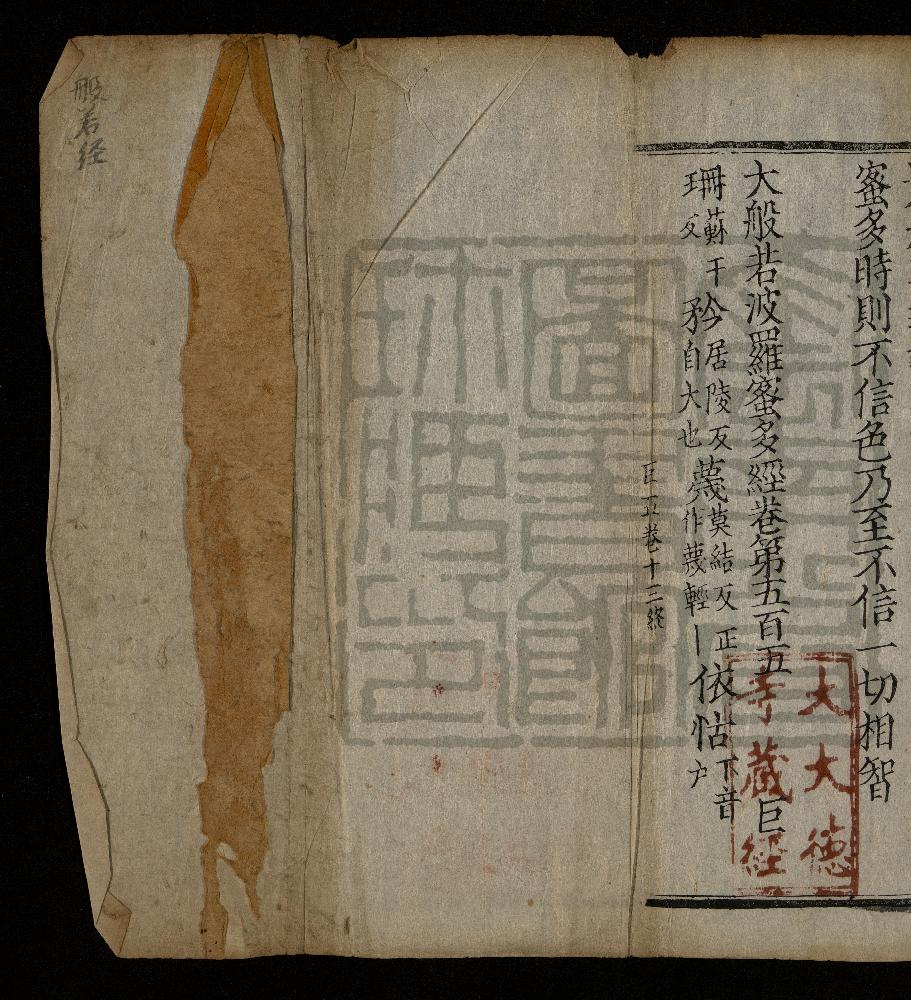 蜜多時則不信色乃至不信一切相智
大般若波羅蜜多經卷第五百五 巨
珊蘇干反 矜居陵反自大也 蔑莫結反正作蔑輕丨 依怙下音户
巨五卷十三終
大大德
寺藏經
般若经